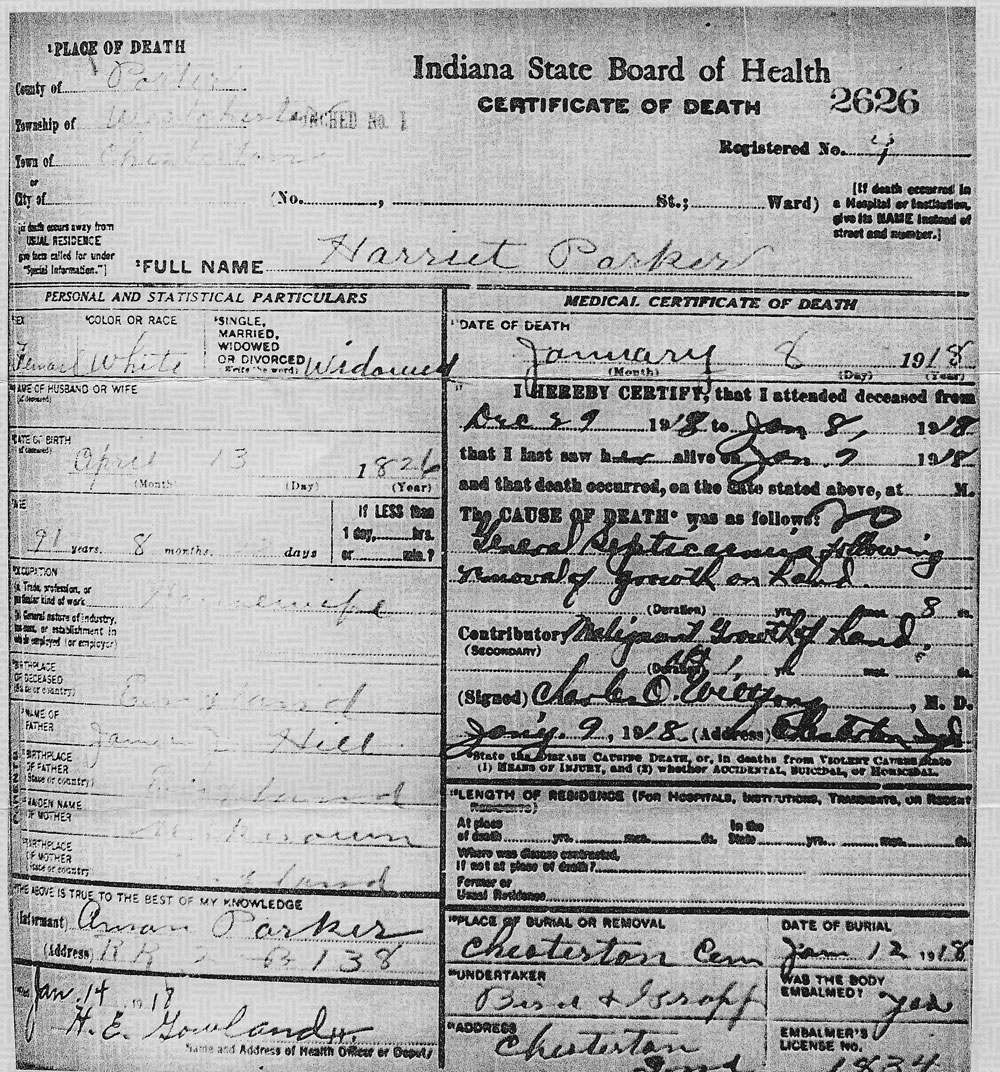 ¹PLACE OF DEATH
County of Porter
Township of Westchester
Town of Chesterton
or
City of
Indiana State Board of Health
CERTIFICATE OF DEATH 2626
Registered No. 4
(No. , St.; Ward)
[If death occurred in
a Hospital or Institution,
give its NAME instead of
street and number.]
death occurs away from
USUAL RESIDENCE
give facts called for under
"Special Information."]
²FULL NAME Harriet Parker
PERSONAL AND STATISTICAL PARTICULARS
SEX
Female
⁴COLOR OR RACE
White
⁵SINGLE,
MARRIED,
WIDOWED
OR DIVORCED
(Write the word) Widowed
NAME OF HUSBAND OR WIFE
DATE OF BIRTH
April 13 1826
(Month) (Day) (Year)
AGE
91 years. 8 months. days
If LESS than
1 day, hrs.
or min.?
OCCUPATION
(a) Trade, profession, or
particular kind of work
(b) General nature of industry,
business, or establishment in
which employed (or employer)
BIRTHPLACE
OF DECEASED
(State or country) England
NAME OF
FATHER Hill
BIRTHPLACE
OF FATHER
(State or country) England
MAIDEN NAME
OF MOTHER
BIRTHPLACE
OF MOTHER
(State or country)
THE ABOVE IS TRUE TO THE BEST OF MY KNOWLEDGE
(Informant) Parker
(Address) RR 138
Jan. 14 1918
H. E. Gowland
Name and Address of Health Officer or Deputy
MEDICAL CERTIFICATE OF DEATH
DATE OF DEATH
January 8 1918
(Month) (Day) (Year)
I HEREBY CERTIFY, that I attended deceased from
Dec 29 1918 to Jan 8, 1918
that I last saw her alive on Jan. 7 1918
and that death occurred, on the date stated above, at M.
The CAUSE OF DEATH* was as follows: 20
General Septicaemia following
removal of growth on hand.
(Duration) yrs. mos. 8 ds.
Contributory Malignant Growth of hand
(SECONDARY)
(Duration) 1 yrs. mos. ds.
(Signed) Charles O. , M. D.
Jan'y. 9, 1918 (Address) Chesterton Ind
*State the DISEASE CAUSING DEATH, or, in deaths from VIOLENT CAUSES, state
(1) MEANS OF INJURY, and (2) whether ACCIDENTAL, SUICIDAL, or HOMICIDAL.
LENGTH OF RESIDENCE (FOR HOSPITALS, INSTITUTIONS, TRANSIENTS, OR RECENT
RESIDENTS)
At place
of death yrs. mos. ds.
In the
State yrs. mos. ds.
Where was disease contracted,
if not at place of death?
Former or
Usual Residence
PLACE OF BURIAL OR REMOVAL
Chesterton Cem
DATE OF BURIAL
Jan 12 1918
UNDERTAKER
WAS THE BODY
EMBALMED? yes
ADDRESS
Chesterton
Ind
EMBALMER'S
LICENSE NO. 1834